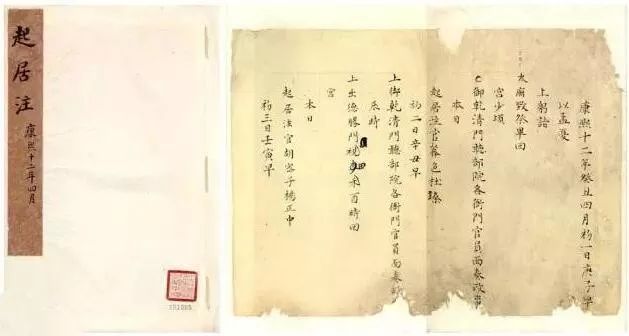 起居注
康熙十二年四月
康熙十二年癸丑四月初一日庚子早
以孟夏
上躬詣
太廟致祭畢回
宮少頃
上御乾清門聽部院各衙門官員面奏政事
本日
起居注官莽色杜臻
初二日辛丑早
上御乾清門聽部院各衙門官員面奏政
辰時
上出德勝門視禾酉時回
宮
本日
起居注官胡密子楊正中
初三日壬寅早